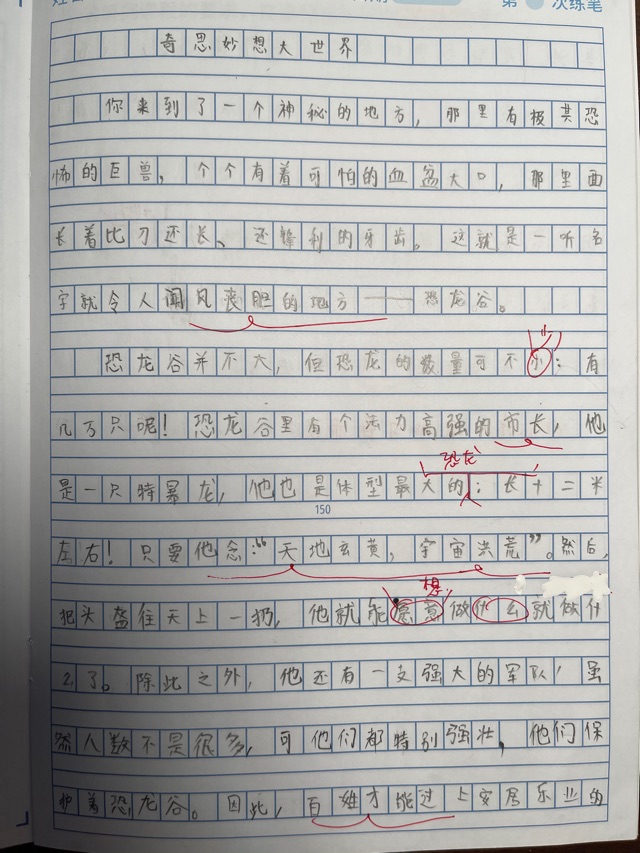 第 次练笔
奇思妙想大世界
你来到了一个神秘的地方，那里有极其恐
怖的巨兽，个个有着可怕的血盆大口，那里面
长着比刀还长、还锋利的牙齿。这就是一听名
字就令人闻风丧胆的地方——恐龙谷。
恐龙谷并不大，但恐龙的数量可不小：有
几万只呢！恐龙谷里有个法力高强的市长，他
恐龙
是一只特暴龙，他也是体型最大的：长十二米
150
左右！只要他念：“天地玄黄，宇宙洪荒”。然后，
想
把头盔往天上一扔，他就能愿意做什么就做什
么了。除此之外，他还有一支强大的军队，虽
然人数不是很多，可他们都特别强壮，他们保
护着恐龙谷。因此，百姓才能过上安居乐业的